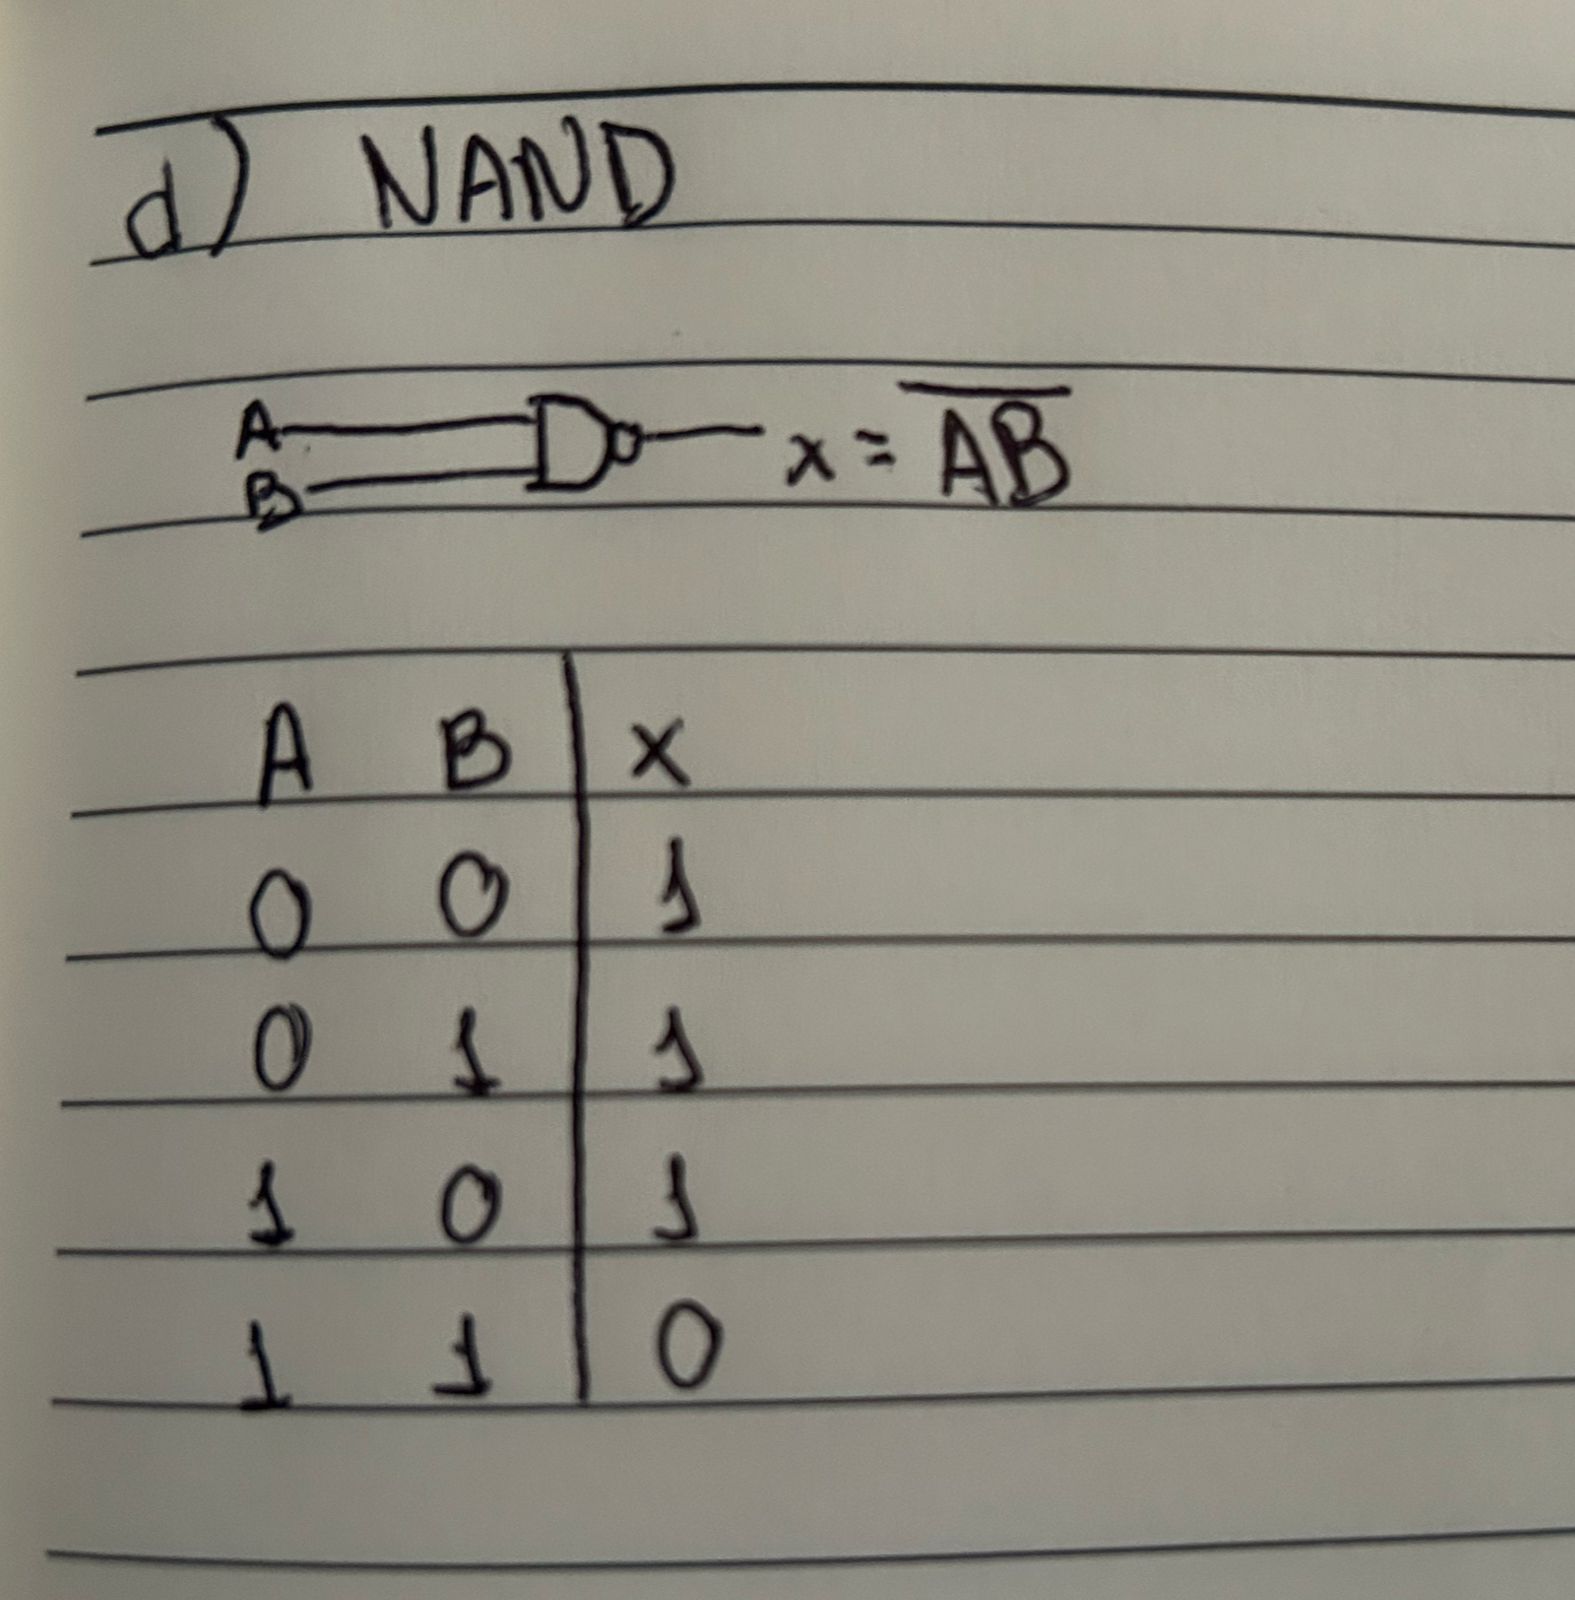 d) NAND
A
B
x = \overline{AB}
A B x
0 0 1
0 1 1
1 0 1
1 1 0